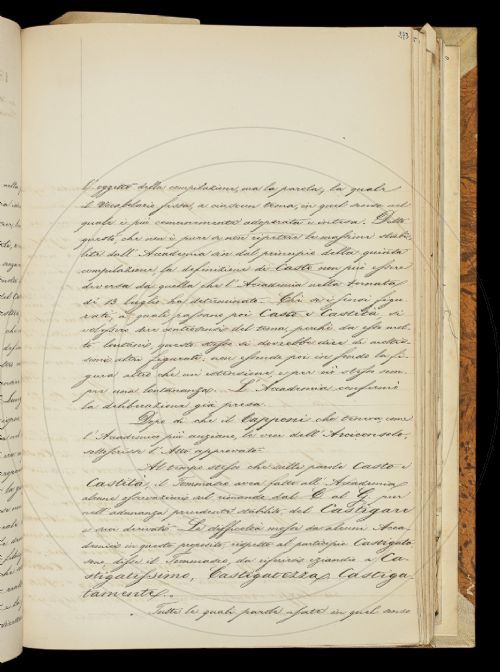 273
l'oggetto della compilazione, ma la parola, la quale
il Vocabolario fissa, a ciascun tema, in quel senso nel
quale è più comunemente adoperata e intesa. Detto
questo, che non è pure se non ripetere le massime stabi-
lite dall'Accademia sin dal principio della quinta
compilazione, la definizione di Casto non può essere
diversa da quella che l'Accademia nella tornata
di 13 luglio ha determinata. Chi se i sensi figu-
rati, a' quali passano poi Casto e Castità, si
volessero dire contrassensi del tema, perchè da esso mol-
to lontani, questo stesso si dovrebbe dire di moltis-
simi altri figurati; non essendo poi in fondo la fi-
gura altro che un'estensione, e per ciò stesso sem-
pre una lontananza. L'Accademia confermò
la deliberazione già presa.
Dopo di che il Capponi che trovavasi come
l'Accademico più anziano, le veci dell'Arciconsolo,
sottoscrisse l'Atto approvato.
Al tempo stesso che sulle parole Casto e
Castità, il Tommaseo avea fatte all'Accademia
alcune osservazioni sul rimando dal C al G, pur
nell'adunanza precedente stabilito, del Castigare
e suoi derivati. Le difficoltà mosse da alcuni Acca-
demici in questo proposito rispetto al participio Castigato
sono, disse il Tommaseo, da riferirsi eziandio a Ca-
stigatissimo, Castigatezza, Castiga-
tamente.
Tutte le quali parole usate in quel senso